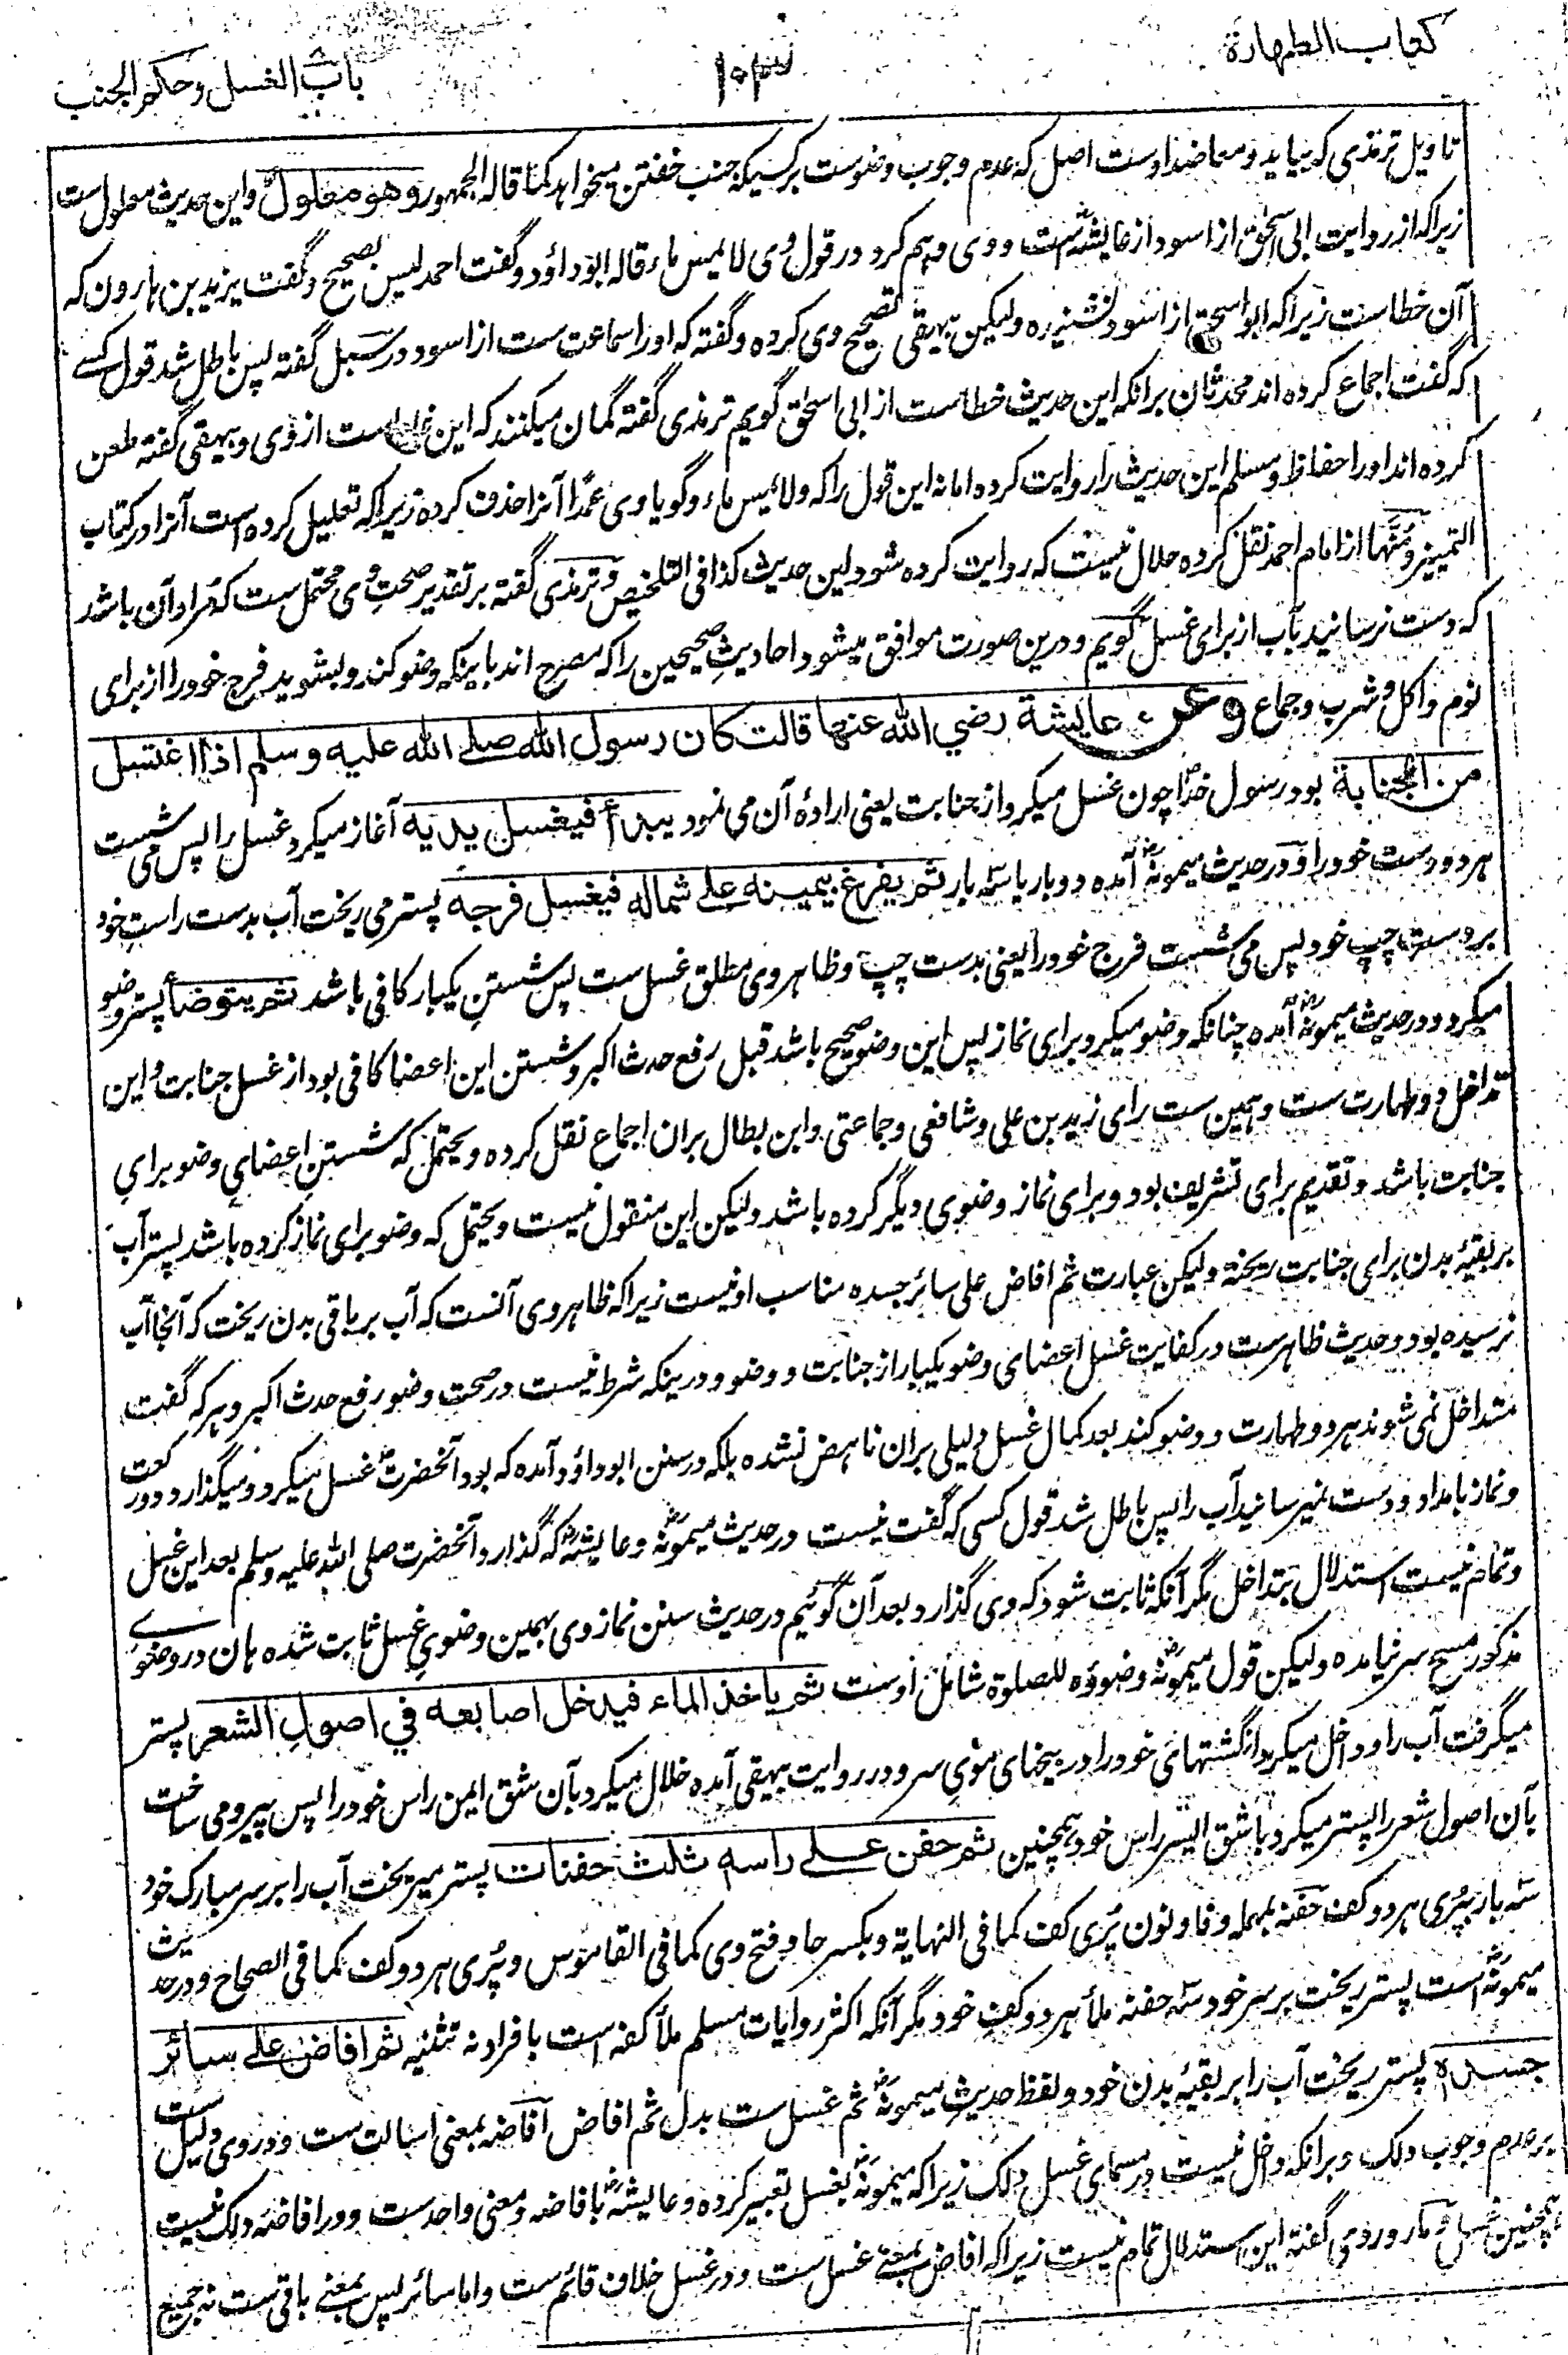 کتاب الطهارة
۱۰۳
باب الغسل وحکم الجنب
تاویل ترمذی که بیاید و معاضد اوست اصل که عدم وجوب وضوست بر کسیکه جنب خفتن میخواهد کما قاله الجمهور وهو معلول واین حدیث معلول است
زیراکه از روایت ابی اسحق از اسود از عایشه است و وی وهم کرد در قول وی لا یمس ماء قاله ابوداؤد و گفت احمد لیس بصحیح و گفت یزید بن هارون که
آن خطاست زیراکه ابو اسحق از اسود نشنیده ولیکن بیهقی تصحیح وی کرده و گفته که او را سماعت ست از اسود در سبل گفته پس باطل شد قول کسے
که گفت اجماع کرده اند محدثان برانکه این حدیث خطاست از ابی اسحق گویم ترمذی گفته گمان میکنند که این غلط است از وی و بیهقی گفته طعن
کرده اند او را حفاظ و مسلم این حدیث را روایت کرده اما نه این قول را که ولا یمس ماء و گویا وی عمدًا آنرا حذف کرده زیراکه تعلیل کرده است آنرا در کتاب
التمییز و مُهنّا از امام احمد نقل کرده حلال نیست که روایت کرده شود این حدیث کذا فی التلخیص و ترمذی گفته بر تقدیر صحتِ وی محتمل ست که مُراد آن باشد
که دست نرسانید بآب از برای غسل گویم و درین صورت موافق میشود احادیثِ صحیحین را که مصرح اند باینکه وضو کند و بشوید فرج خود را از برای
نوم و اکل و شرب و جماع وعن عایشة رضي الله عنها قالت کان رسول الله صلے الله علیه وسلم اذا اغتسل
من الجنابة بود رسول خدا چون غسل میکرد از جنابت یعنی ارادهٔ آن می نمود یبدأ فیغسل یدیه آغاز میکرد غسل را پس می شست
هر دو دست خود را و در حدیث میمونه آمده دو بار یا سه بار ثم یفرغ بیمینه علے شماله فیغسل فرجه پستر می ریخت آب بدست راستِ خود
بر دست چپ خود پس می شست فرج خود را یعنی بدست چپ و ظاهر وی مطلق غسل ست پس شستنِ یکبار کافی باشد ثم یتوضأ پستر وضو
میکرد و در حدیث میمونه آمده چنانکه وضو میکرد برای نماز پس این وضو صحیح باشد قبل رفع حدث اکبر و شستن این اعضا کافی بود از غسل جنابت و این
تداخل دو طهارت ست و همین ست رای زید بن علی و شافعی و جماعتی و ابن بطال بران اجماع نقل کرده و یحتمل که شستنِ اعضایِ وضو برایِ
جنابت باشد و تقدیم برای تشریف بود و برای نماز وضوی دیگر کرده باشد ولیکن این منقول نیست و یحتمل که وضو برای نماز کرده باشد پستر آب
بر بقیهٔ بدن برای جنابت ریخته ولیکن عبارت ثم افاض علی سائر جسده مناسب او نیست زیراکه ظاهر وی آنست که آب بر باقی بدن ریخت که آنجا آب
نرسیده بود و حدیث ظاهرست در کفایت غسل اعضای وضو یکبار از جنابت و وضو و درینکه شرط نیست در صحتِ وضو رفع حدث اکبر و هر که گفت
متداخل نمی شوند هر دو طهارت و وضو کند بعد کمال غسل دلیلی بران ناهض نشده بلکه در سنن ابوداؤد آمده که بود آنحضرت غسل میکرد و میگذارد دو رکعت
و نماز بامداد و دست نمیرسانید آب را پس باطل شد قول کسی که گفت نیست در حدیث میمونه و عایشه که گذارد آنحضرت صلی الله علیه وسلم بعد این غسل
و تمام نیست استدلال بتداخل مگر آنکه ثابت شود که وی گذارد بعد آن گوئیم در حدیث سنن نماز وی بهمین وضویِ غسل ثابت شده هان در وضوے
مذکور مسح سر نیامده ولیکن قول میمونه وضوؤه للصلوة شامل اوست ثم یاخذ الماء فیدخل اصابعه في اصولِ الشعر پستر
میگرفت آب را و داخل میکرد انگشتهایٔ خود را در بیخهای مویِ سر و در روایت بیهقی آمده خلال میکرد بآن شق ایمن راس خود را پس پیرو می ساخت
بآن اصول شعر را پستر میکرد با شق ایسر راس خود همچنین ثم حفن علے راسه ثلث حفنات پستر میریخت آب را بر سر مبارک خود
سه بار بپُری هر دو کف حفنه بمهمله و فا و نون پُری کف کما فی النهایة و بکسر حا و فتح وی کما فی القاموس و پُری هر دو کف کما فی الصحاح و در حدیث
میمونه است پستر ریخت بر سر خود سه حفنه ملأ هر دو کفِ خود مگر آنکه اکثر روایات مسلم ملأ کفه است با فراد نه تثنیه ثم افاض علے سائر
جسده پستر ریخت آب را بر بقیهٔ بدن خود و لفظ حدیثِ میمونه ثم غسل ست بدل ثم افاض افاضه بمعنی اسالت ست و در وی دلیل ست
بر عدم وجوب دلک و برانکه داخل نیست در مسمای غسل دلک زیراکه میمونه بغسل تعبیر کرده و عایشه بافاضه و معنی واحد ست و در افاضه دلک نیست
همچنین غسل و ماوردی گفته این استدلال تمام نیست زیراکه افاض بمعنے غسل ست و در غسل خلاف قائم ست و اما سائر پس بمعنے باقی ست نه جمیع